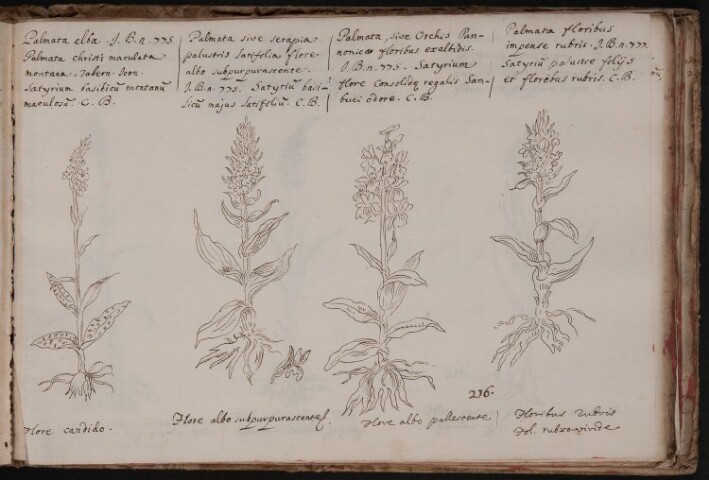 Palmata elba. J. B. n. 775
Palmata christi maculata
montana. Tabern. Icon.
Satyrium basilicū
maculosū. C. B.
Palmata sive serapia
palustris latifolia flore
albo subpurpurascente.
J. B. n. 775. Satyriū basi-
licū majus latifoliū. C. B.
Palmata, sive Orchis Pan-
nonica floribus exalbidis.
J. B. n. 775. Satyrium
flore Consolidę regalis Sam-
buci odore. C. B.
Palmata floribus
impense rubris. J. B. n. 777.
Satyriū palustre folijs
et floribus rubris. C. B.
236.
Flore candido.
Flore albo subpurpurascente
Flore albo pallescente
Floribus rubris
Fol. rubro-viride